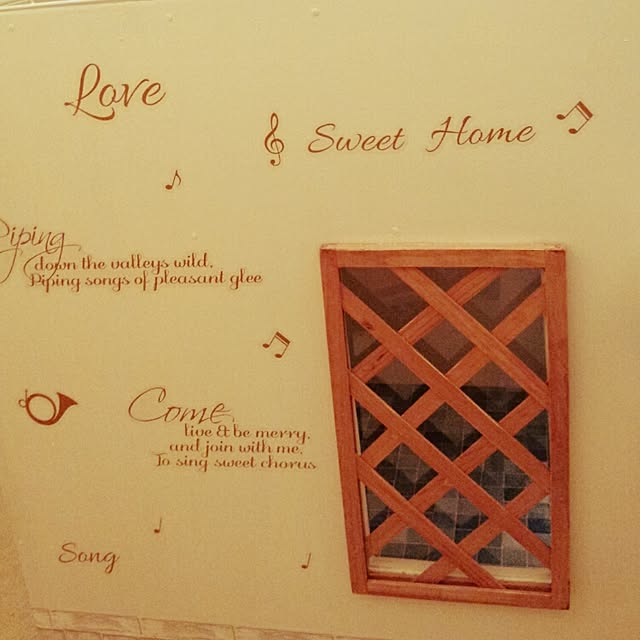 Love
Sweet Home
Piping
down the valleys wild,
Piping songs of pleasant glee
Come
live & be merry,
and join with me,
To sing sweet chorus
Song